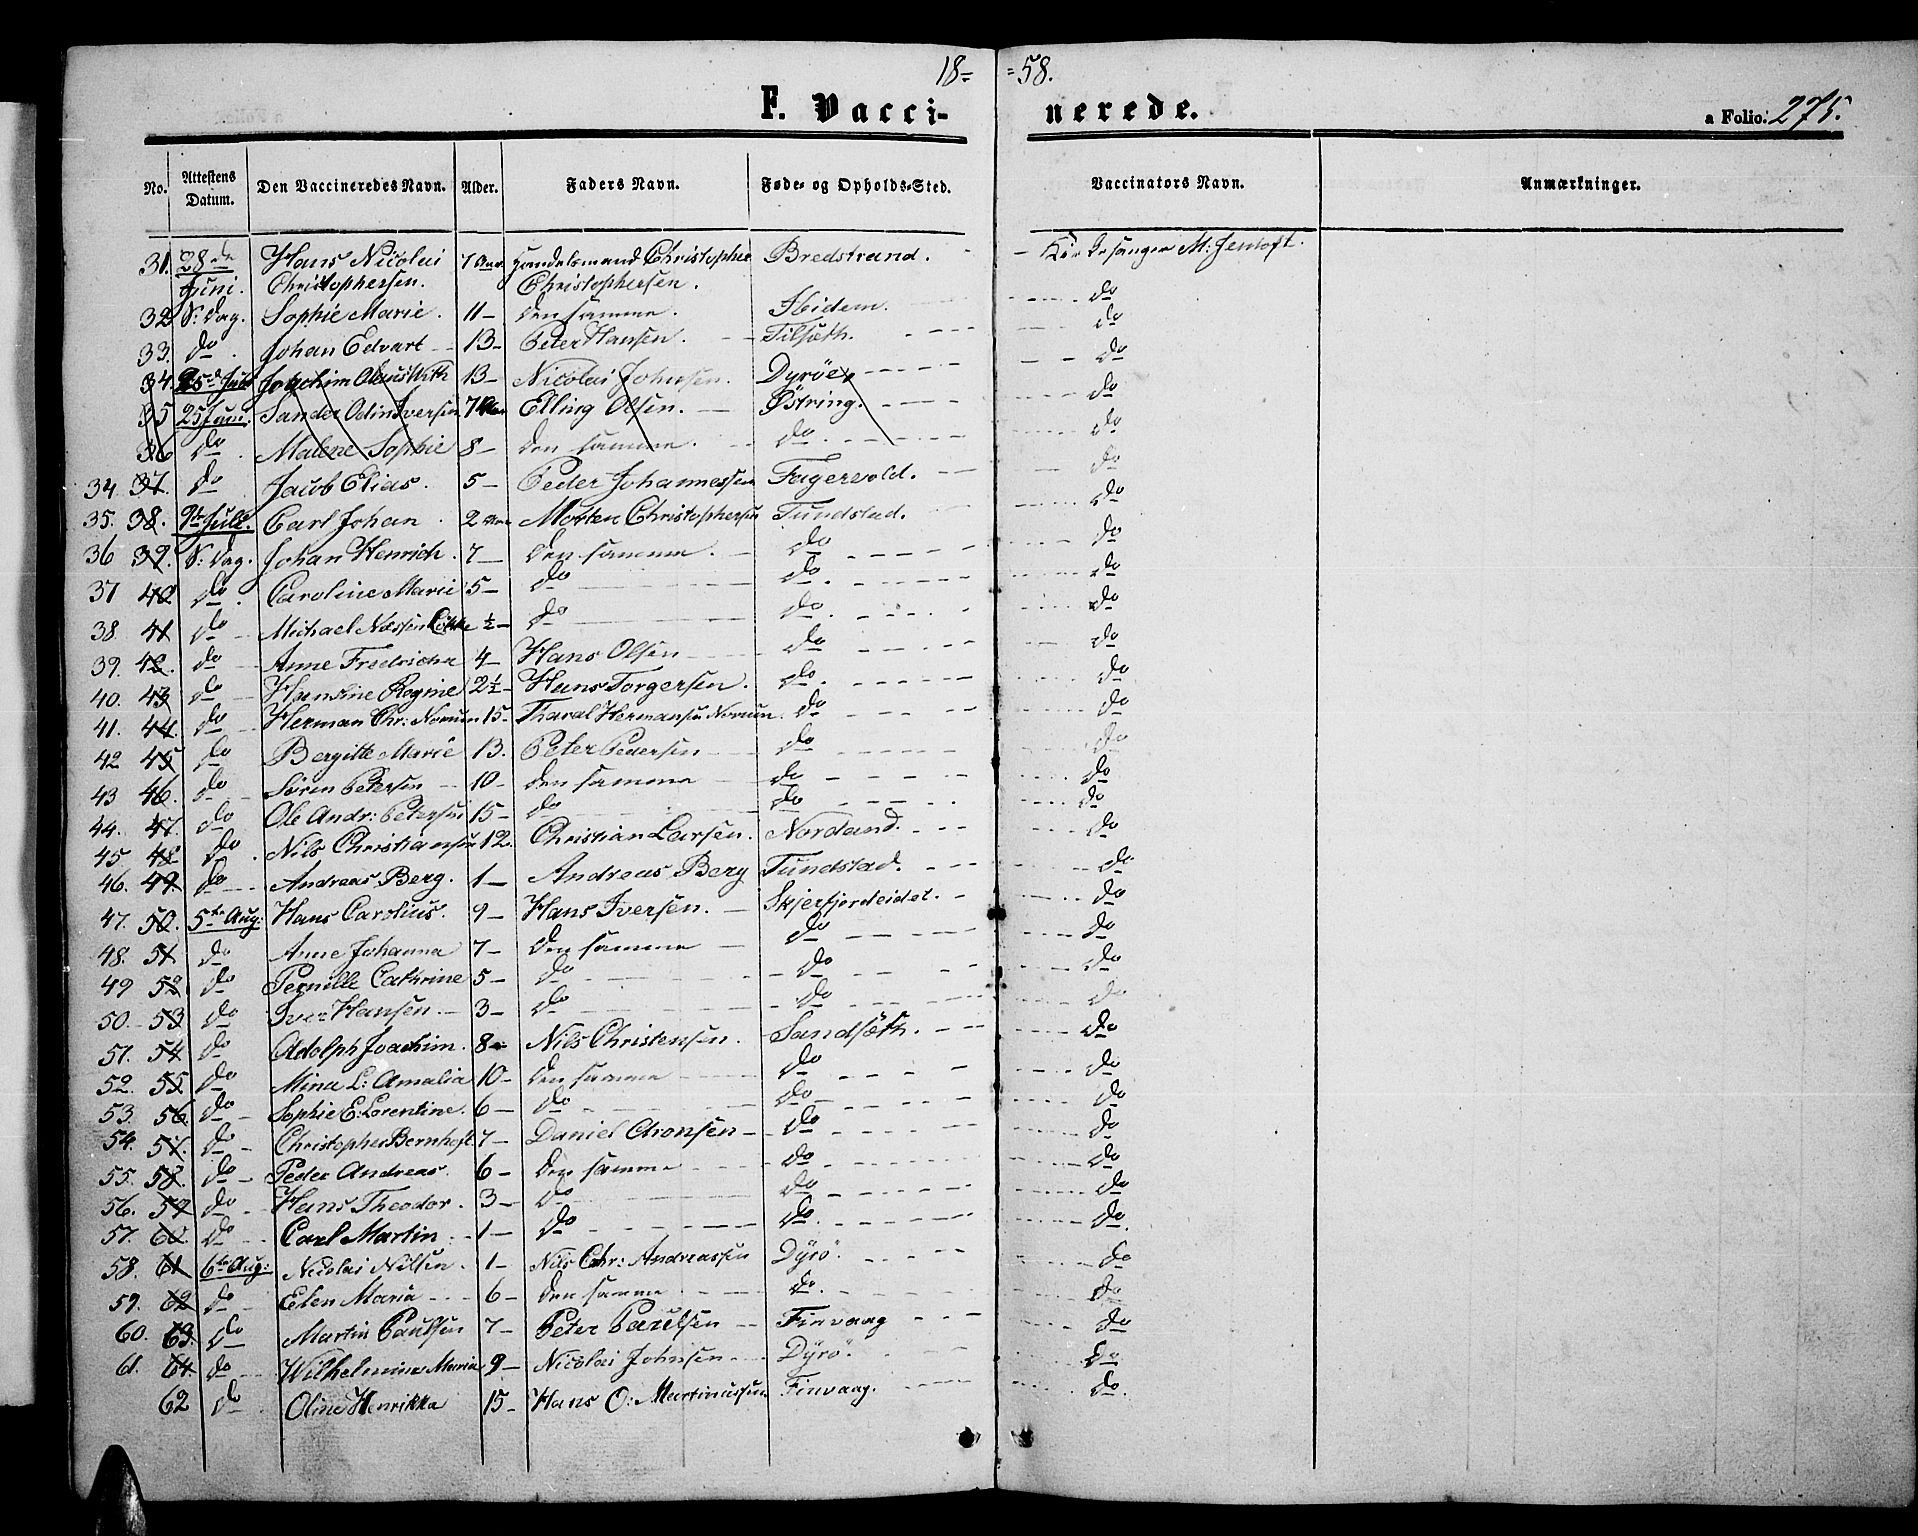 18= =58.
F. Vacci- nerede.
a Folio. 275.
No. Attestens Datum. Den Vaccineredes Navn. Alder. Faders Navn. Føde- og Opholds-Sted. Vaccinators Navn. Anmærkninger.
31. 28de Juni. Hans Nicolai Christophersen. 7 Aar. Handelsmand Christopher Christophersen. Bredstrand. - Kirkesanger M: Jentoft.
32 S: Dag. Sophie Marie. 11- den samme. Ibidem. do
33. do. Johan Edvart 13- Peter Hansen. Tilsæth. do
34. 25de Juli Joachim Olaus With 13- Nicolai Johnsen. Dyrøe, do
35 25 Juni. Sander Odin Iversen 7 Aar Elling Olsen. Østring. do
36 do. Malene Sophie 8- den samme. do. do
34. 37. do. Jacob Elias. 5- Peder Johannessen Fagervold. do
35. 38. 9de Juli. Carl Johan. 2 Aar Morten Christophersen Tundstad. do
36 39. S: Dag. Johan Henrich. 7- den samme. do do
37 40 do. Caroline Marie 5- do do. do
38. 41 do Michael Næssen ½- do do. do
39. 42. do Anne Fredricha 4- Hans Olsen do do
40. 43 do Hansine Regine 2½- Hans Torgersen. do. do
41. 44. do Herman Chr: Normn 15- Tharal Hermansen Normn. do do
42 45 do Bergitte Marie 13. Peter Pedersen do do
43 46. do Søren Petersen 10- den samme do do
44. 47. do Ole Andr: Petersen 15- do do do
45 48 do. Nils Christiansen 12. Christian Larsen. Nordland. do
46. 49 do Andreas Berg. 1- Andreas Berg Tundstad. do
47. 50. 5te Aug: Hans Carolius. 9- Hans Iversen. Skjerfjordeidet. do
48. 51 do Anne Johanna 7- den samme do do
49 52 do Pernille Cathrine 5- do do do
50. 53 do Iver Hansen. 3- do do do
51. 54 do Adolph Joachim. 8- Nils Christensen. Sandsæth. do
52. 55 do Mina L: Amalia 10- den samme do do
53. 56. do Sophie E: Lorentine. 6- do do do
54. 57. do Christopher Bernhoft 7- Daniel Aronsen do do
55. 58. do Peder Andreas. 6- den samme do do
56. 59 do Hans Theodor. 3- do do do
57. 60 do Carl Martin 1- do do. do.
58. 61 6te Aug: Nicolai Nilsen. 1- Nils Chr: Andreassen Dyrø. do
59. 62 do Elen Maria 6- den samme do. do
60. 63. do Martin Paulsen 7- Peter Paulsen Finvaag do
61. 64. do Wilhelmine Maria 9- Nicolai Johnsen Dyrø. do
62 do Oline Henrikka 15- Hans O: Martinussen Finvaag. do.